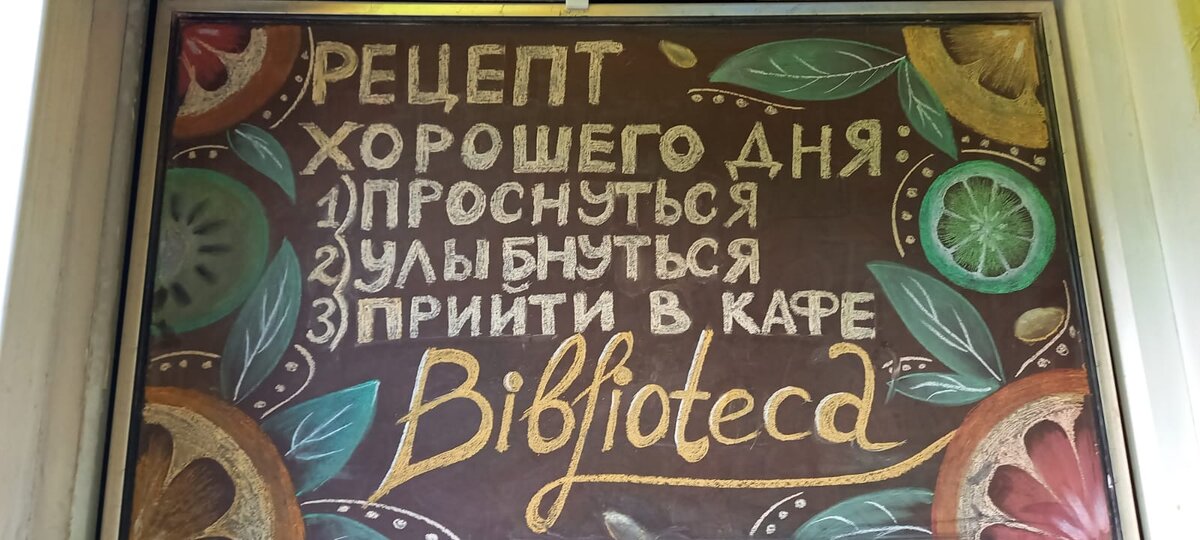 РЕЦЕПТ
ХОРОШЕГО ДНЯ:
1) ПРОСНУТЬСЯ
2) УЛЫБНУТЬСЯ
3) ПРИЙТИ В КАФЕ
Biblioteca